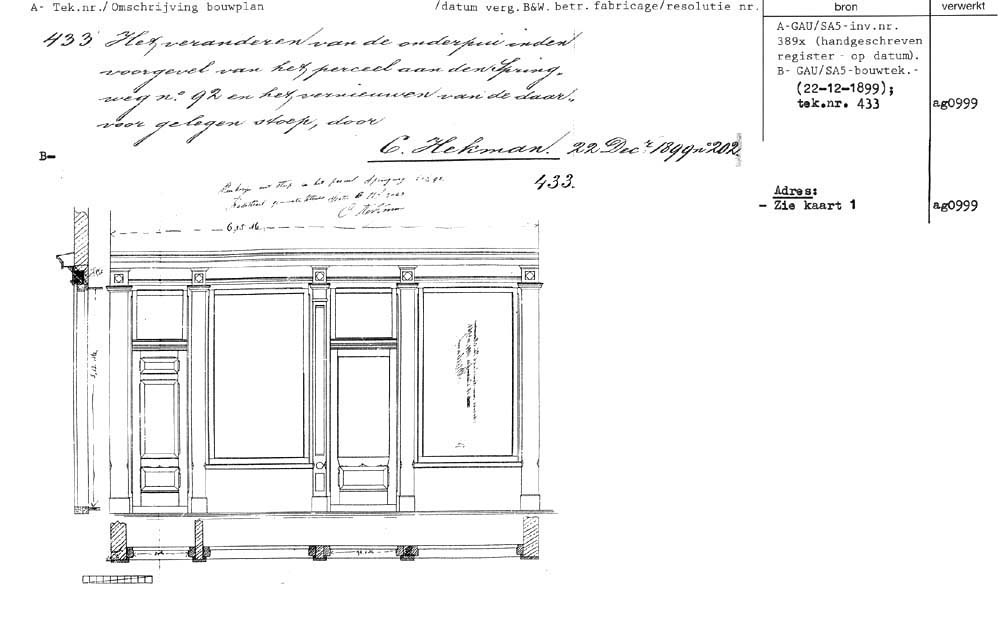 A- Tek.nr./Omschrijving bouwplan /datum verg.B&W.betr.fabricage/resolutie nr.
bron
verwerkt
433 Het veranderen van de onderpui in den
voorgevel van het perceel aan den Spring-
weg no. 92 en het vernieuwen van de daar-
voor gelegen stoep, door
C. Hekman. 22 Decr. 1899 no 202
B-
433.
A-GAU/SA5-inv.nr.
389x (handgeschreven
register - op datum).
B- GAU/SA5-bouwtek.-
(22-12-1899);
tek.nr. 433
ag0999
Adres:
- Zie kaart 1
ag0999
6,15 M.